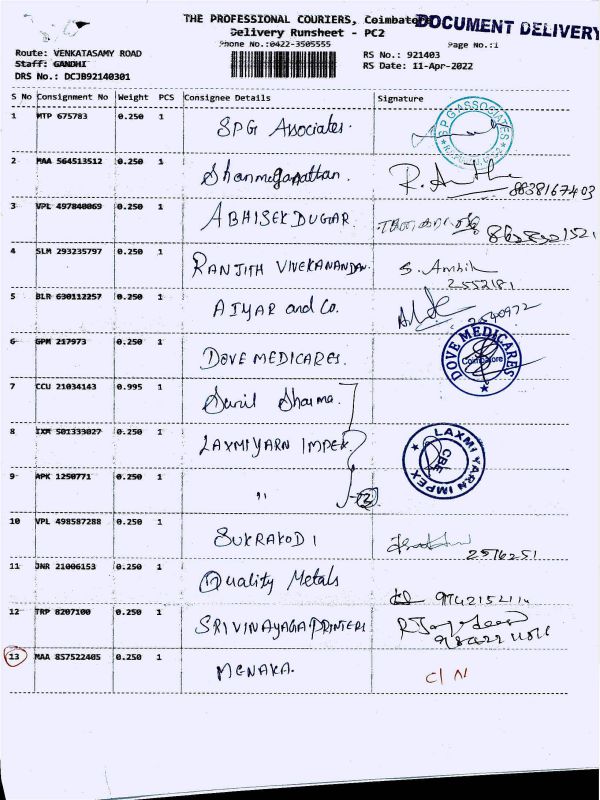 THE PROFESSIONAL COURIERS, Coimbatore
DOCUMENT DELIVERY
Delivery Runsheet - PC2
Phone No.:0422-3505555
Page No.:1
Route: VENKATASAMY ROAD
RS No.: 921403
Staff: GANDHI
RS Date: 11-Apr-2022
DRS No.: DCJB92140301
S No Consignment No Weight PCS Consignee Details Signature
1 MTP 675783 0.250 1 SPG Associates.
SPG ASSOCIATES
2 MAA 564513512 0.250 1 Shanmuganathan.
8838167403
3 VPL 497840069 0.250 1 ABHISEK DUGAR
4 SLM 293235797 0.250 1 RANJITH VIVEKANANDAN. S. Ambik
2552181
5 BLR 630112257 0.250 1 AIYAR and Co.
2540972
6 GPM 217973 0.250 1 DOVE MEDICARES.
DOVE MEDICARES
Coimbatore
7 CCU 21034143 0.995 1 Sunil Sharma.
8 IXM 501333027 0.250 1 LAXMIYARN IMPEX
LAXMI YARN IMPEX
CBE
9 APK 1250771 0.250 1 "
3
10 VPL 498587288 0.250 1 SUKRAKODI
2516251
11 JNR 21006153 0.250 1 Quality Metals
12 TRP 8207100 0.250 1 SRIVINAYAGA PRINTERS
13 MAA 857522405 0.250 1 MENAKA. C/N